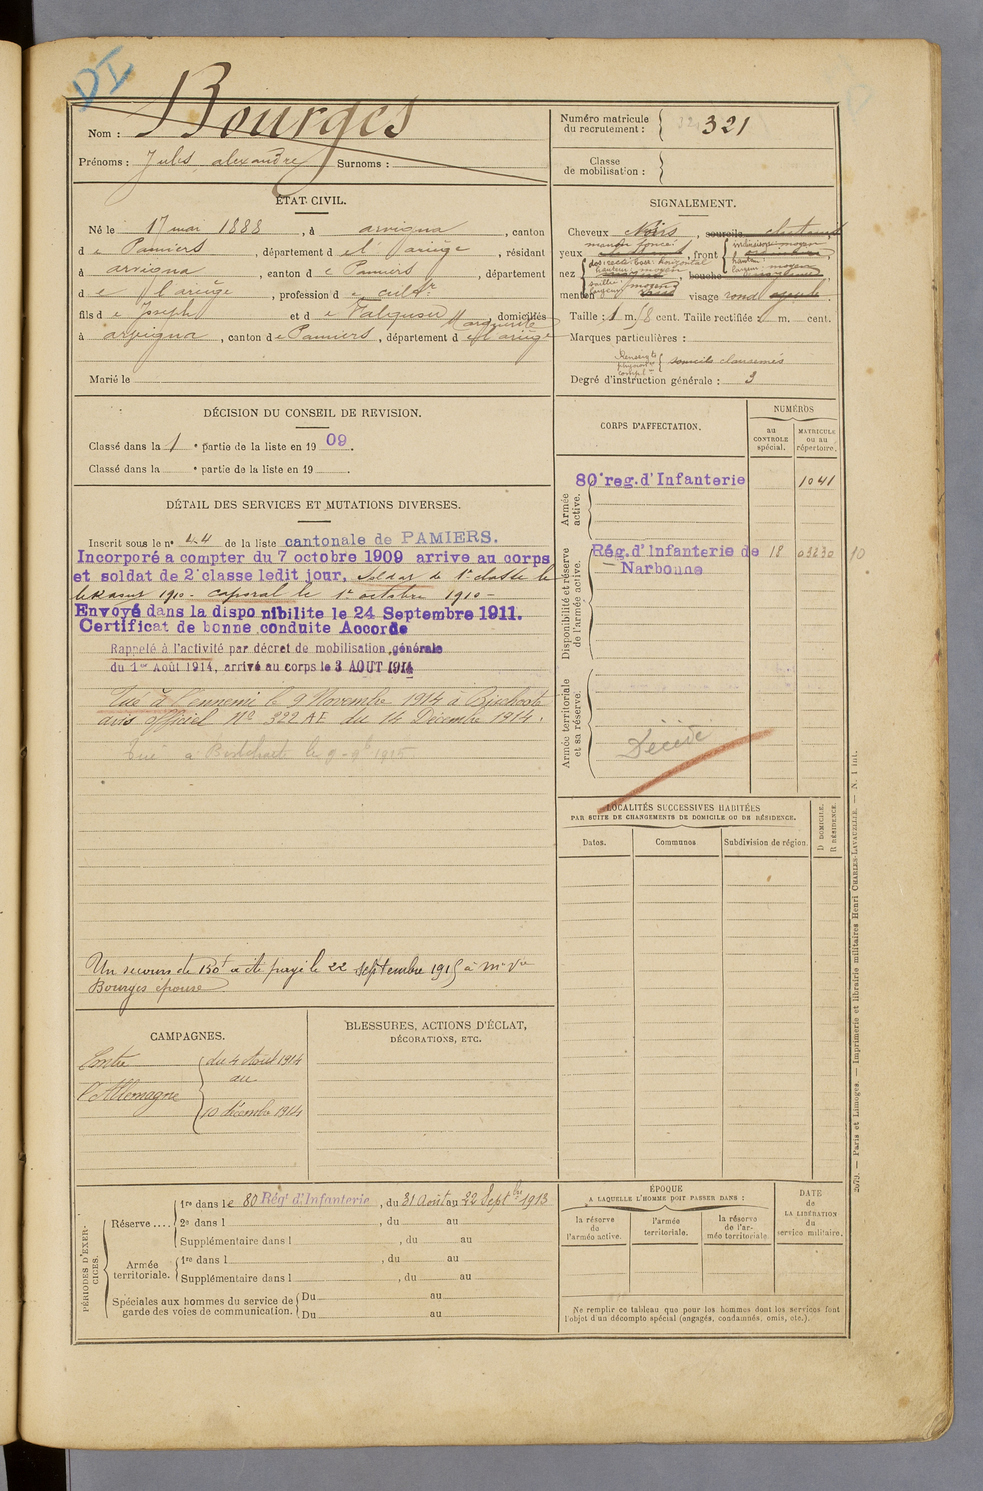 DI
Nom : Bourges
Prénoms : Jules, alexandre Surnoms :
Numéro matricule du recrutement : 321
Classe de mobilisation :
ÉTAT CIVIL.
Né le 17 mai 1888, à arvigna, canton
de Pamiers, département de l'ariège, résidant
à arvigna, canton de Pamiers, département
de l'ariège, profession de cultr
fils de Joseph et de Marguerite, domiciliés
à arvigna, canton de Pamiers, département de l'ariège
Marié le
SIGNALEMENT.
Cheveux Noirs, sourcils chatains
yeux marron foncé, front
inclinaison: moyen
hauteur:
largeur: moyen
nez
dos: recti base: horizontal
hauteur: moyen
saillie: moyen
largeur
, bouche
menton visage rond
Taille : 1 m. 58 cent. Taille rectifiée : m. cent.
Marques particulières :
Renseigts physion. compl. sourcils clairsemés
Degré d'instruction générale : 3
DÉCISION DU CONSEIL DE REVISION.
Classé dans la 1e partie de la liste en 1909.
Classé dans la e partie de la liste en 19 .
DÉTAIL DES SERVICES ET MUTATIONS DIVERSES.
Inscrit sous le n° 44 de la liste cantonale de PAMIERS.
Incorporé a compter du 7 octobre 1909 arrive au corps
et soldat de 2e classe ledit jour, Soldat de 1e classe le
1910 - caporal le 1er octobre 1910 -
Envoyé dans la disponibilite le 24 Septembre 1911.
Certificat de bonne conduite Accordé
Rappelé à l'activité par décret de mobilisation générale
du 1er Août 1914, arrivé au corps le 3 AOUT 1914
Tué à l'ennemi le 9 Novembre 1914 à Bixchoote
avis officiel No 322 AE du 14 Décembre 1914.
Tué à le 9-9b 1915
Un secours de 150f a été payé le 22 septembre 1915 à Me Vve
Bourges épouse
CORPS D'AFFECTATION.
NUMÉROS
au CONTROLE spécial.
MATRICULE ou au répertoire.
Armée active.
80e reg. d'Infanterie 1041
Disponibilité et réserve de l'armée active.
Rég. d'Infanterie de Narbonne 18 03230 10
Armée territoriale et sa réserve.
Décédé
LOCALITÉS SUCCESSIVES HABITÉES
PAR SUITE DE CHANGEMENTS DE DOMICILE OU DE RÉSIDENCE.
Dates. Communes Subdivision de région. D DOMICILE. R RÉSIDENCE.
CAMPAGNES.
Contre l'Allemagne
du 4 Août 1914
au
10 décembre 1914
BLESSURES, ACTIONS D'ÉCLAT,
DÉCORATIONS, ETC.
PÉRIODES D'EXERCICES.
Réserve ....
1re dans le 80 Régt d'Infanterie, du 31 Août au 22 Septbre 1913
2e dans l , du au
Supplémentaire dans l , du au
Armée territoriale.
1re dans l , du au
Supplémentaire dans l , du au
Spéciales aux hommes du service de garde des voies de communication.
Du au
Du au
ÉPOQUE
A LAQUELLE L'HOMME DOIT PASSER DANS :
la réserve de l'armée active.
l'armée territoriale.
la réserve de l'armée territoriale.
DATE de LA LIBÉRATION du service militaire.
Ne remplir ce tableau que pour les hommes dont les services font
l'objet d'un décompte spécial (engagés, condamnés, omis, etc.).
2079. — Paris et Limoges. — Imprimerie et librairie militaires Henri CHARLES-LAVAUZELLE. — N. 1 int.